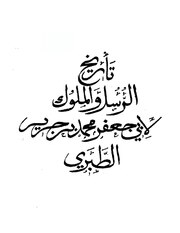 تأريخ
الرسل والملوك
لأبي جعفر محمد بن جرير
الطبري